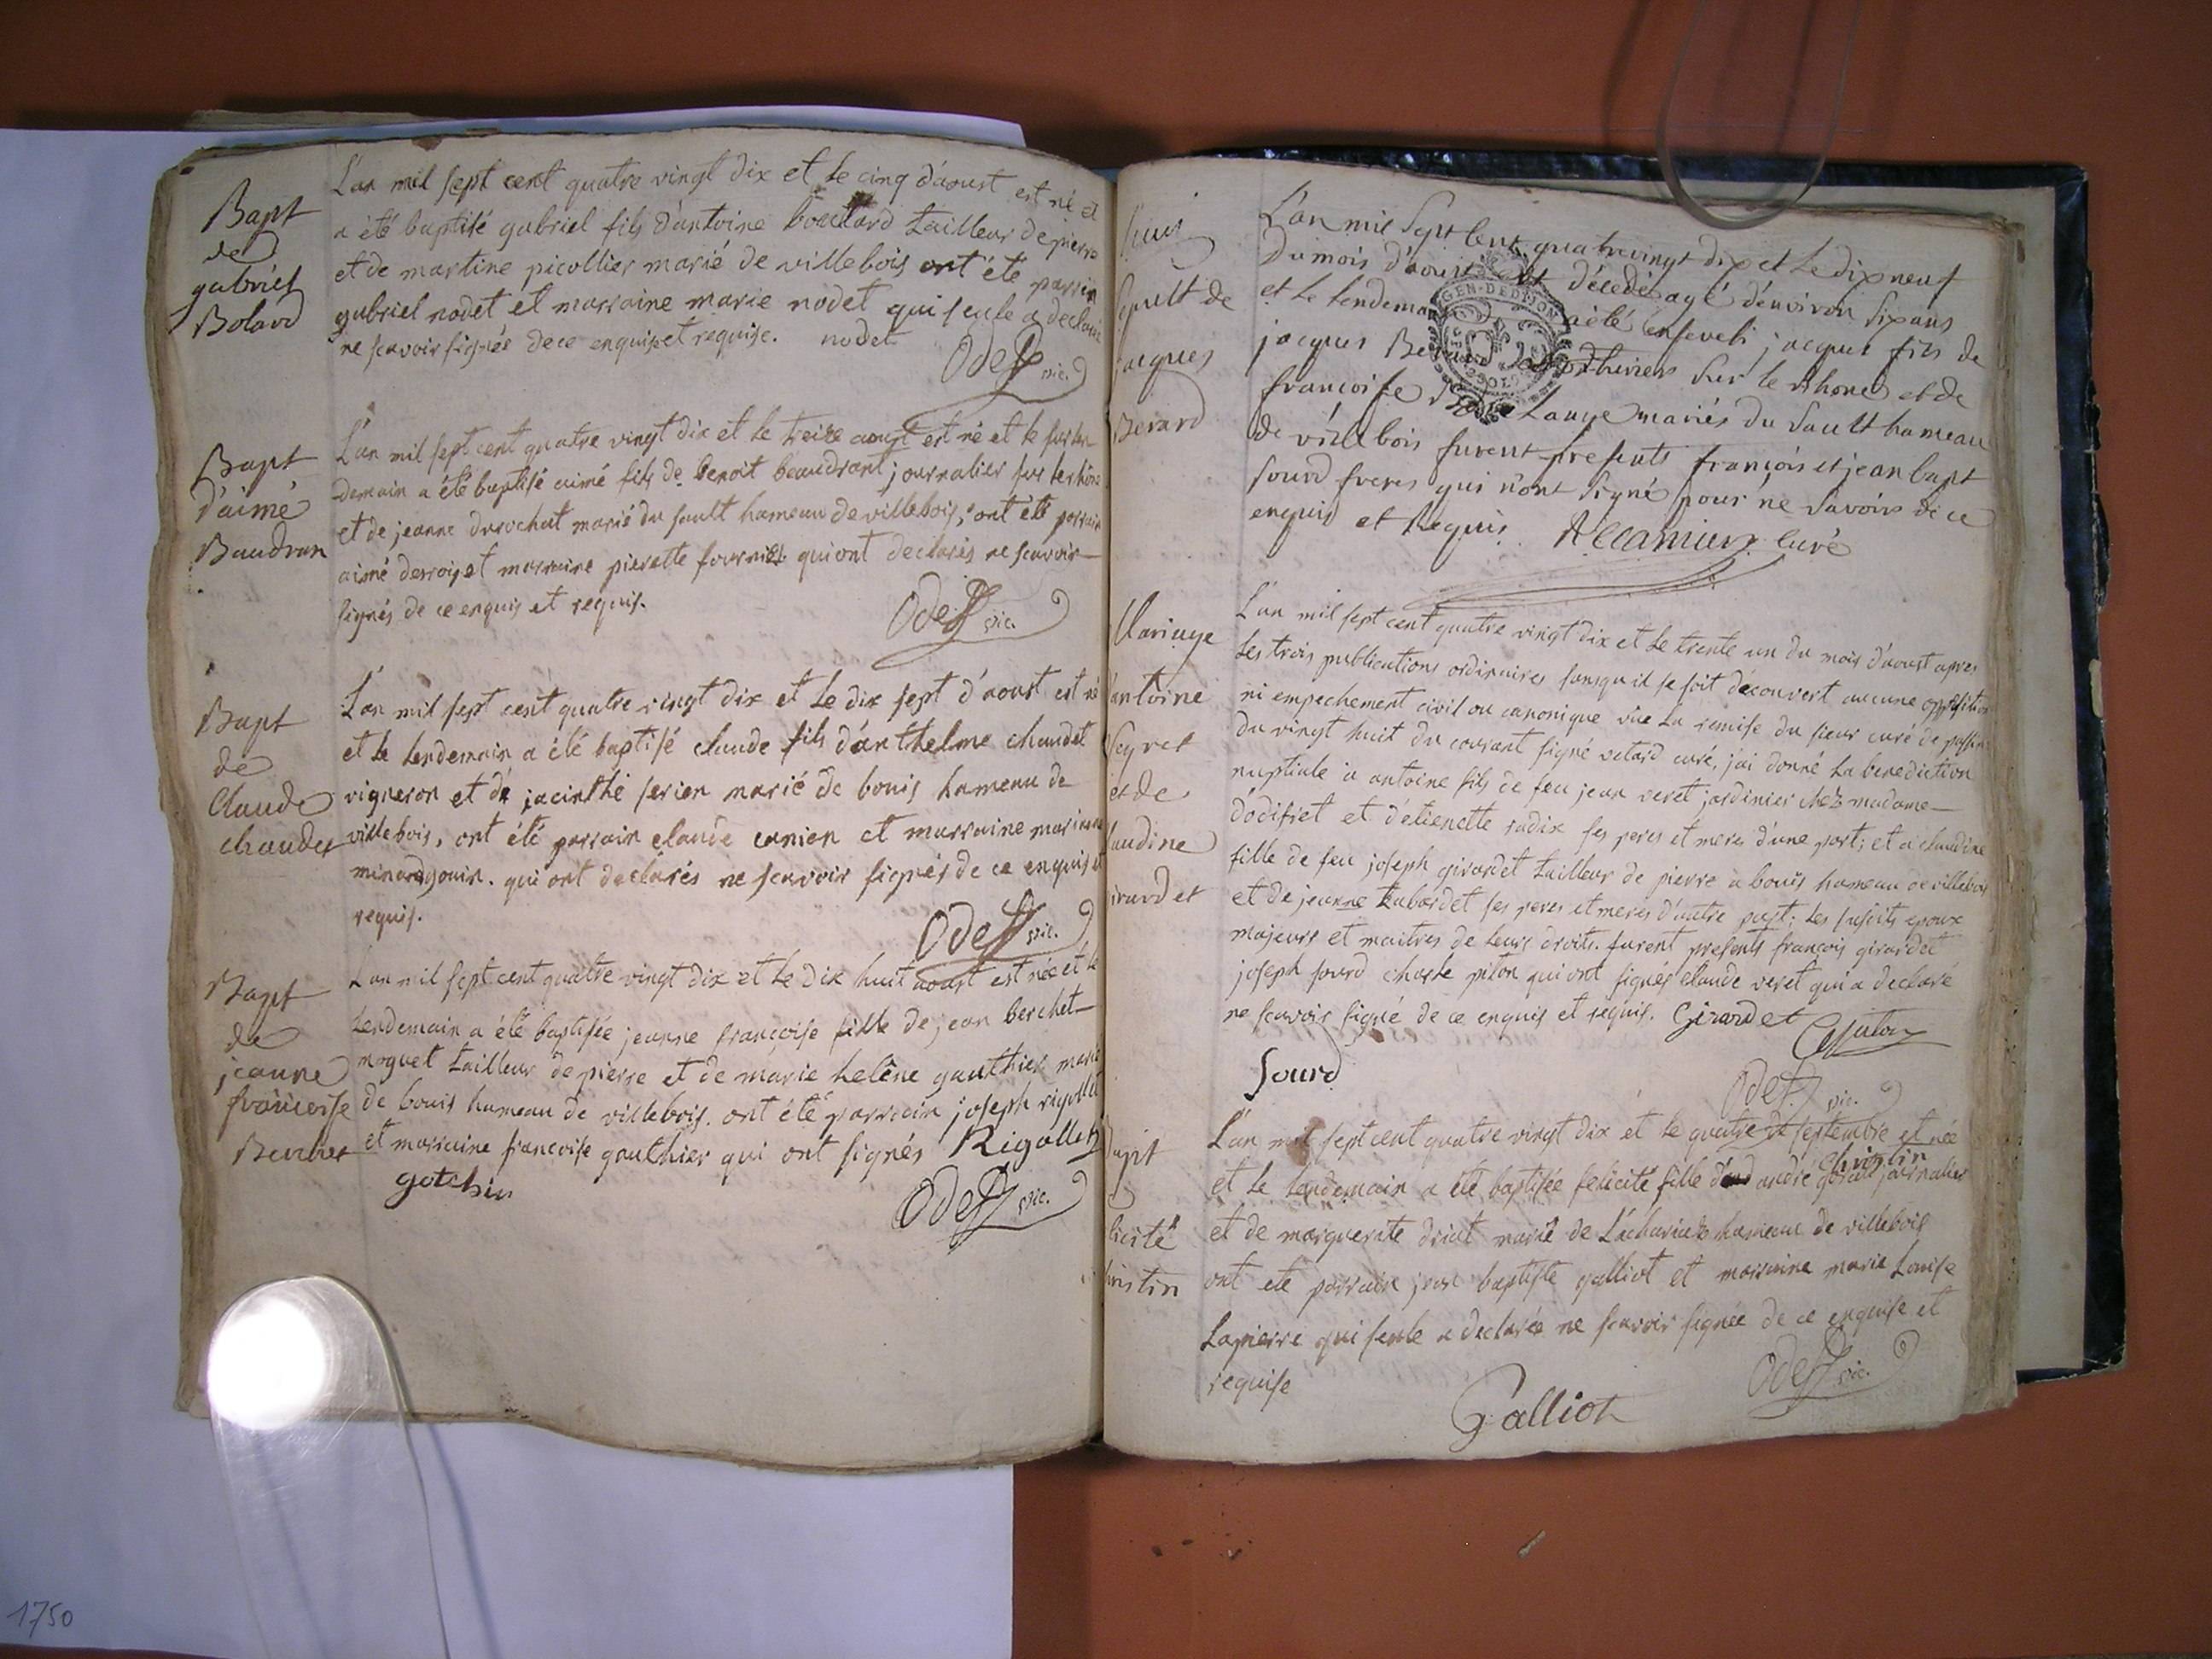 Bapt
de
gabriel
Bolard
L'an mil sept cent quatre vingt dix et le cinq d'aoust est né et
a été baptisé gabriel fils d'antoine boulard tailleur de pierre
et de martine picollier marié de villebois ont été parrin
gabriel nodet et marraine marie nodet qui seule a declaré
ne scavoir signée de ce enquise et requise. nodet
Odet vic.
Bapt
d'aimé
Baudran
L'an mil sept cent quatre vingt dix et le treize aoust est né et le surlen
demain a été baptisé aimé fils de benoit beaudrant journalier sur le rhône
et de jeanne durochat marié du sault hameau de villebois, ont été parrain
aimé derroi et marraine pierette fournier qui ont declarés ne scavoir
signés de ce enquis et requis.
Odet vic.
Bapt
de
Claude
chaudet
L'an mil sept cent quatre vingt dix et le dix sept d'aoust est né
et le lendemain a été baptisé claude fils d'anthelme chaudet
vigneron et de jacinthe serien marié de bouis hameau de
villebois, ont été parrain claude canier et marraine
qui ont declarés ne scavoir signés de ce enquis et
requis.
Odet vic.
Bapt
de
jeanne
francoise
Berchet
L'an mil sept cent quatre vingt dix et le dix huit aoust est née et le
lendemain a été baptisée jeanne françoise fille de jean berchet
moquet tailleur de pierre et de marie helène gauthier marié
de bouis hameau de villebois. ont été parrain joseph rigollet
et marraine francoise gauthier qui ont signés Rigollet
gotchin
Odet vic.
1750
sepult de
jacques
Berard
L'an mil Sept Cent quatrevingt dix et Le dix neuf
Du mois d'aoust est décédé agé d'environ Six ans
et le lendemain a été enseveli jacques fils de
jacques Sur le Rhone et de
françoise Lange mariés du Sault hameau
de villebois furent presents françois et jean bapt
sourd freres qui n'ont Signé pour ne Savoir de ce
enquis et Requis. curé
GEN·DEDIJON
Mariage
antoine
Veyret
et de
laudine
irardet
L'an mil sept cent quatre vingt dix et le trente un du mois d'aoust apres
Les trois publications ordinaires sans qu'il se soit découvert aucune opposition
ni empechement civil ou canonique vüe La remise du sieur curé de
du vingt huit du courant signé curé, j'ai donné La benediction
nuptiale a antoine fils de feu jean veret jardinier chez madame
dodifret et d'etienette radix ses peres et meres d'une part; et a claudine
fille de feu joseph girardet tailleur de pierre a bouis hameau de villebois
et de jeanne ses peres et meres d'autre part: Les susdits epoux
majeurs et maitres de Leurs droits. furent presents françois girardet
joseph sourd charle piton qui ont signés claude veret qui a declaré
ne scavoir signé de ce enquis et requis. Girardet
C piton
Sourd
Odet vic.
Bapt
licité
ristin
L'an mil sept cent quatre vingt dix et le quatre de septembre est née
christin
et le Lendemain a été baptisée felicité fille d'andré journalier
et de marguerite driat marié de hameau de villebois
ont eté parrain jean baptiste galliot et marraine marie Louise
Lapierre qui seule a declarée ne scavoir signée de ce enquise et
requise
Odet vic.
Galliot